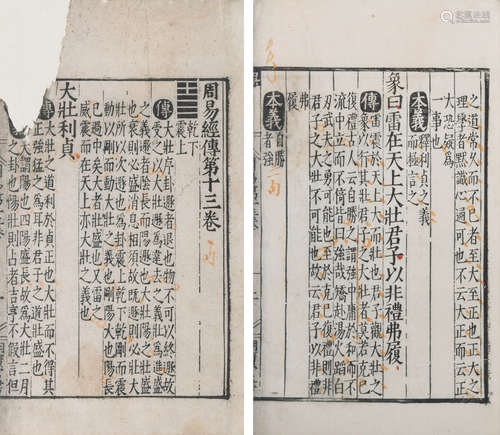 周易經傳第十三卷
乾下
震上
傳
大壯序卦遯者退也物不可以終遯故
受之以大壯遯爲違去之義壯爲進盛
之義遯者陰長而陽遯也大壯陽之壯盛
也衰則必盛消息相須故既遯則必壯大
壯所以次遯也爲卦震上乾下乾剛而震
動以剛而動大壯之義也剛陽大也陽長
已過中矣大者壯盛也又雷之
威震而在天上亦大壯之義也
大壯利貞
傳
大壯之道利於貞正也大壯而不得其
正強猛之爲耳非君子之道壯盛也
大謂陽也四陽盛長故爲大壯二月
之卦也陽壯則占者吉亨不假言但
之道常久而不已者至大至正也正大之
理學者默識心通可也不云大正而云正
大恐疑爲
一事也
本義
釋利貞之義
而極言之
象曰雷在天上大壯君子以非禮弗履
傳
雷震於天上大而壯也君子觀大壯之
象以行其壯君子之大壯者莫若克己
復禮古人云自勝之謂強中庸於和而不
流中立而不倚皆曰強哉矯赴湯火蹈白
刃武夫之勇可能也至於克己復禮則非
君子之大壯不可能也故云君子以非禮
弗履
本義
自勝
者強